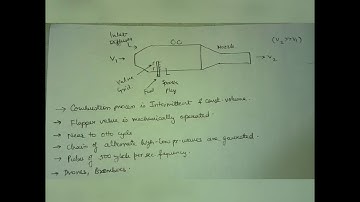 Inlet
Diffuser
C.C
Nozzle
(V2>>V1)
V1
V2
Valve
Grid
Fuel
Spark
Plug
→ Combustion process is Intermittent & const volume.
→ Flapper valve is mechanically operated.
→ Near to otto cycle
→ Chain of alternate high-low pr waves are generated.
→ Pulse of 500 cycle per sec frequency.
→ Drones, Bombers.